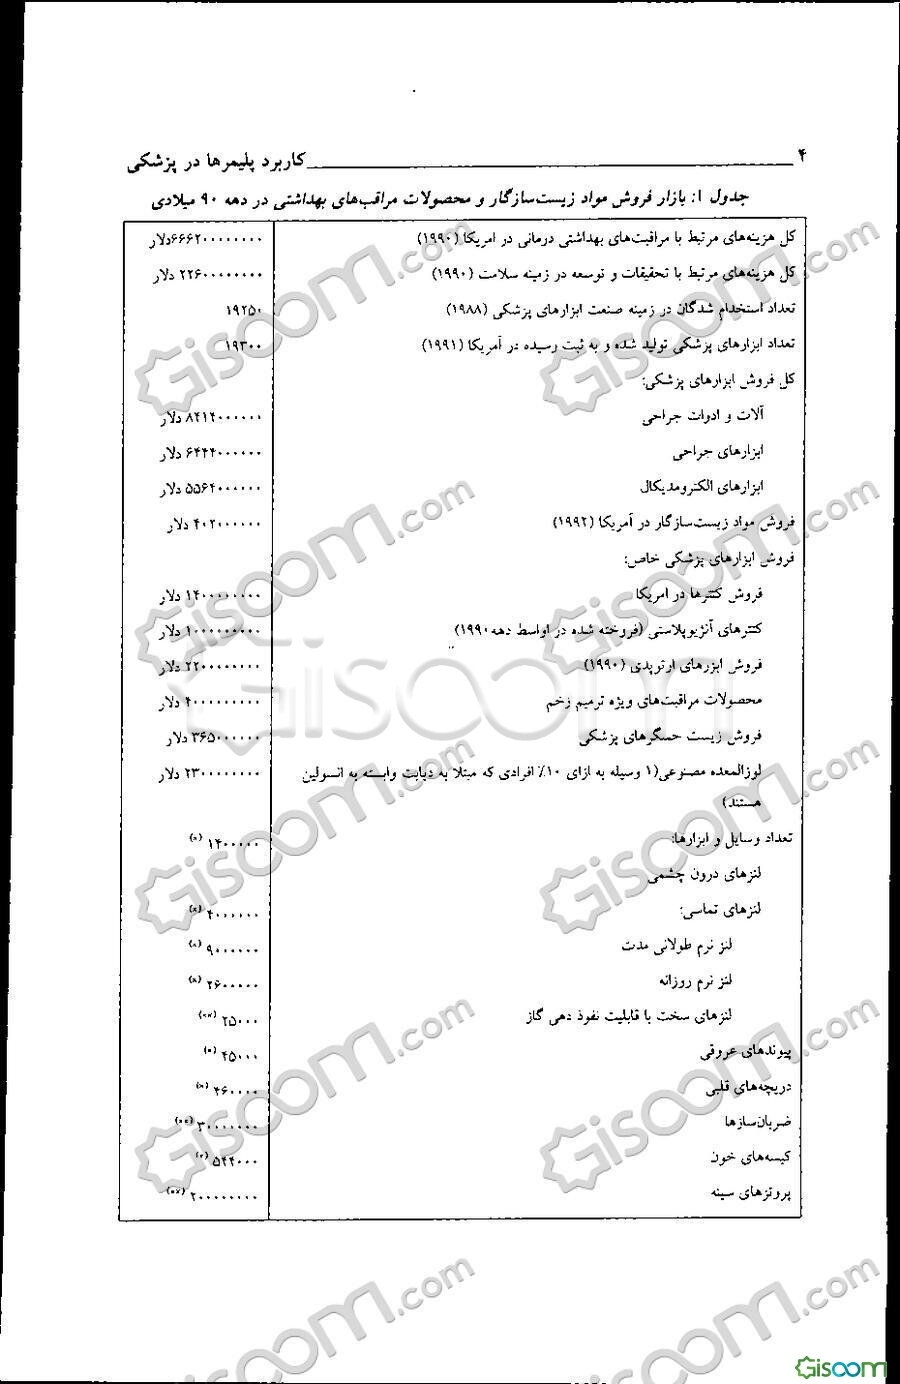 ۴ کاربرد پلیمرها در پزشکی
جدول ۱: بازار فروش مواد زیست‌سازگار و محصولات مراقب‌های بهداشتی در دهه ۹۰ میلادی
کل هزینه‌های مرتبط با مراقبت‌های بهداشتی درمانی در امریکا (۱۹۹۰) ۶۶۶۲۰۰۰۰۰۰۰۰دلار
کل هزینه‌های مرتبط با تحقیقات و توسعه در زمینه سلامت (۱۹۹۰) ۲۲۶۰۰۰۰۰۰۰۰ دلار
تعداد استخدام شدگان در زمینه صنعت ابزارهای پزشکی (۱۹۸۸) ۱۹۲۵۰
تعداد ابزارهای پزشکی تولید شده و به ثبت رسیده در آمریکا (۱۹۹۱) ۱۹۳۰۰
کل فروش ابزارهای پزشکی:
آلات و ادوات جراحی ۸۴۱۴۰۰۰۰۰۰ دلار
ابزارهای جراحی ۶۴۴۴۰۰۰۰۰۰ دلار
ابزارهای الکترومدیکال ۵۵۶۴۰۰۰۰۰۰ دلار
فروش مواد زیست‌سازگار در آمریکا (۱۹۹۲) ۴۰۲۰۰۰۰۰۰ دلار
فروش ابزارهای پزشکی خاص:
فروش کتترها در امریکا ۱۴۰۰۰۰۰۰۰۰ دلار
کتترهای آنژیوپلاستی (فروخته شده در اواسط دهه ۱۹۹۰) ۱۰۰۰۰۰۰۰۰۰ دلار
فروش ابزرهای ارتوپدی (۱۹۹۰) ۲۲۰۰۰۰۰۰۰۰ دلار
محصولات مراقبت‌های ویژه ترمیم زخم ۴۰۰۰۰۰۰۰۰۰ دلار
فروش زیست حسگرهای پزشکی ۳۶۵۰۰۰۰۰۰ دلار
لوزالمعده مصنوعی(۱ وسیله به ازای ۱۰٪ افرادی که مبتلا به دیابت وابسته به انسولین ۲۳۰۰۰۰۰۰۰۰ دلار
هستند)
تعداد وسایل و ابزارها: ۱۴۰۰۰۰۰
لنزهای درون چشمی
لنزهای تماسی: ۴۰۰۰۰۰۰
لنز نرم طولانی مدت ۹۰۰۰۰۰۰
لنز نرم روزانه ۲۶۰۰۰۰۰
لنزهای سخت با قابلیت نفوذ دهی گاز ۲۵۰۰۰۰
پیوندهای عروقی ۴۵۰۰۰
دریچه‌های قلبی ۴۶۰۰۰۰
ضربان‌سازها ۳۰۰۰۰۰۰۰
کیسه‌های خون ۵۴۴۰۰۰
پروتزهای سینه ۲۰۰۰۰۰۰۰۰
Gisoom
Gisoom.com